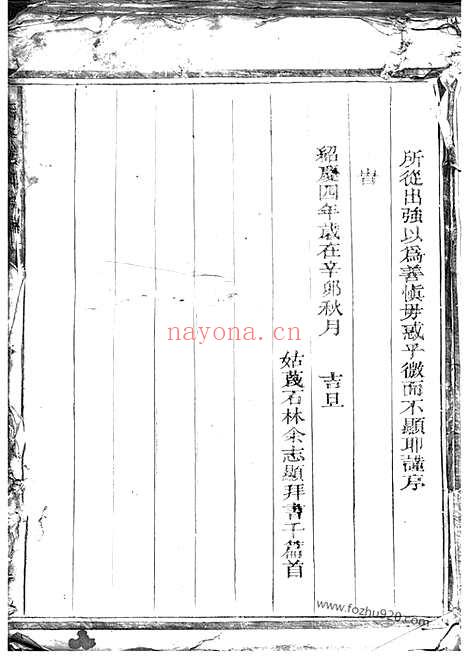 所從出強以爲善愼毋惑乎微而不顯耶謹序
旹
紹慶四年歲在辛卯秋月　吉旦
姑蔑石林余志顯拜書于篇首
nayona.cn
www.fozhu920.com